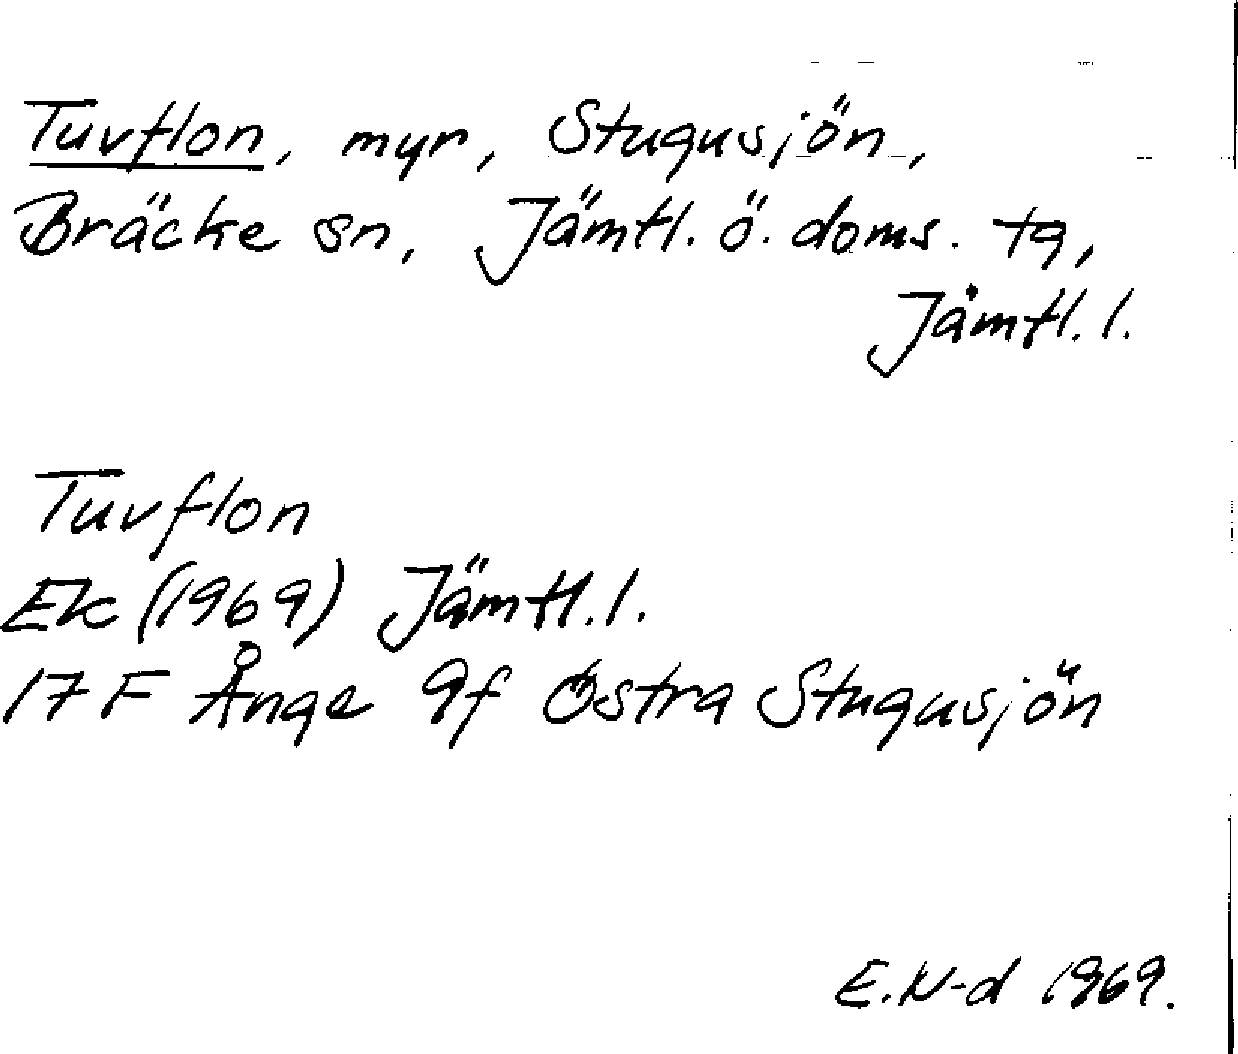 Tuvflon, myr, Stugusjön,
Bräcke sn, Jämtl. ö. doms. tg,
Jämtl. l.
Tuvflon
Ek (1969) Jämtl. l.
17 F Ånge 9f Östra Stugusjön
E.N-d 1969.